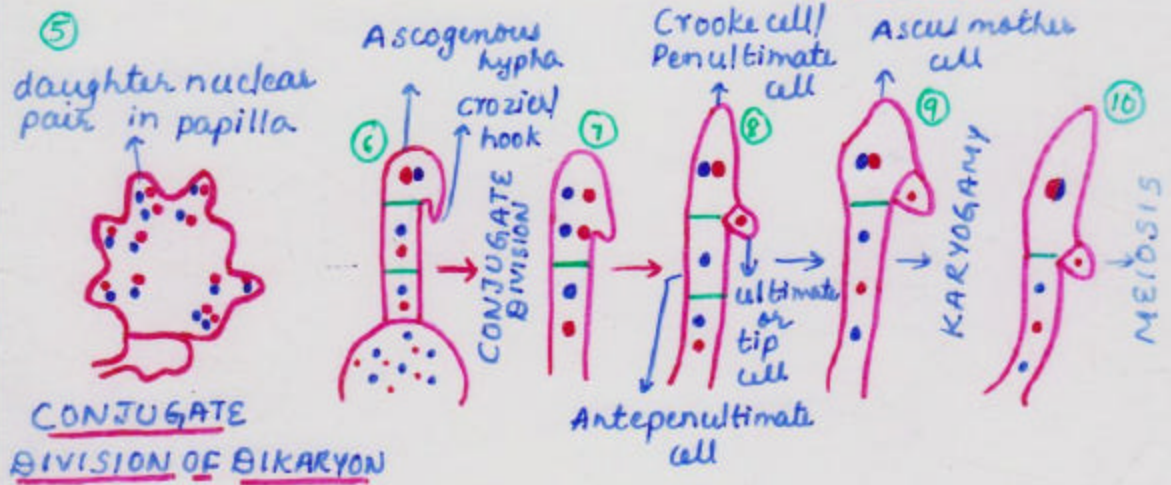 5
daughter nuclear
pair in papilla
CONJUGATE
DIVISION OF DIKARYON
Ascogenous
hypha
6
crozier/
hook
CONJUGATE
DIVISION
7
Crooke cell/
Penultimate
cell
8
ultimate
or
tip
cell
Antepenultimate
cell
Ascus mother
cell
9
KARYOGAMY
10
MEIOSIS